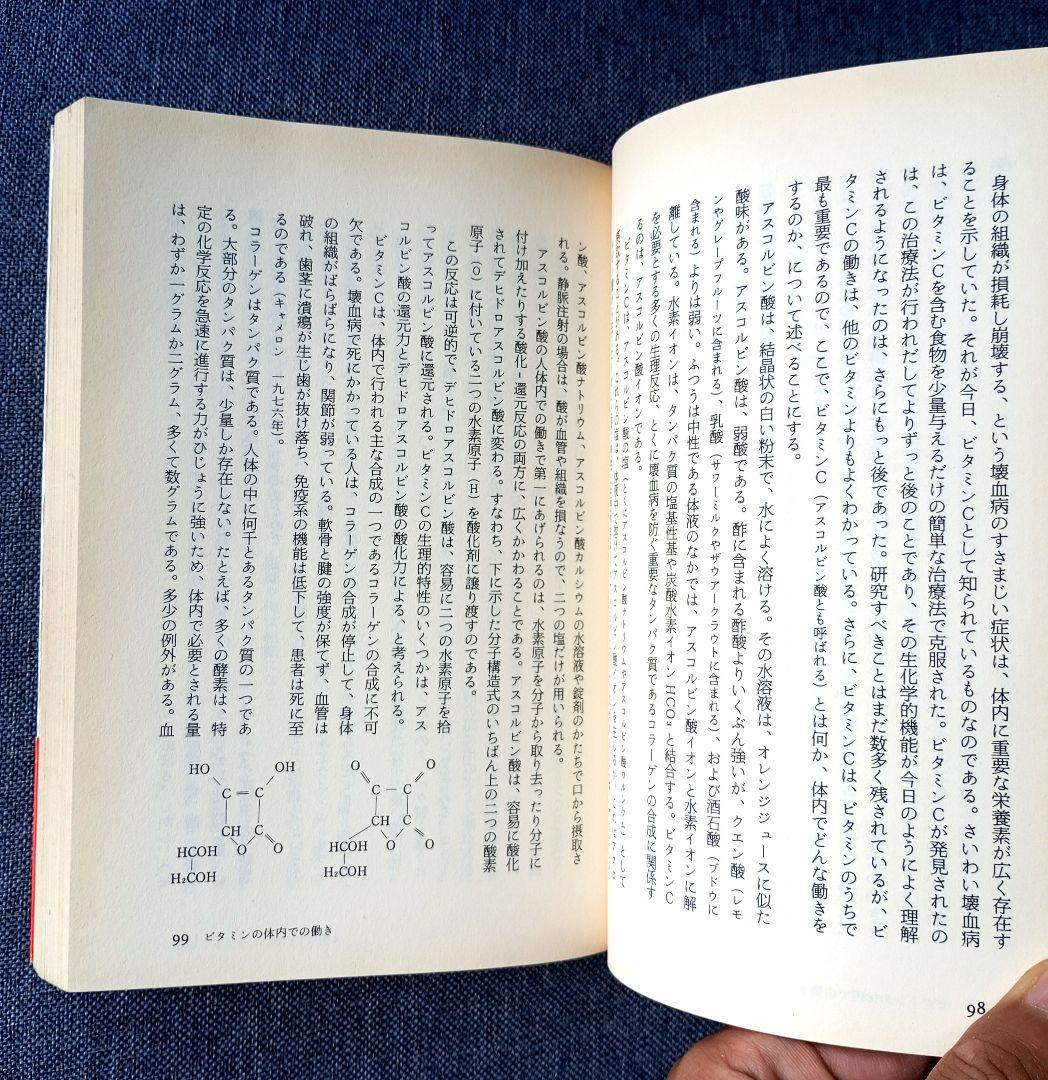 身体の組織が損耗し崩壊する、という壊血病のすさまじい症状は、体内に重要な栄養素が広く存在す
ることを示していた。それが今日、ビタミンCとして知られているものなのである。さいわい壊血病
は、ビタミンCを含む食物を少量与えるだけの簡単な治療法で克服された。ビタミンCが発見されたの
は、この治療法が行われだしてよりずっと後のことであり、その生化学的機能が今日のようによく理解
されるようになったのは、さらにもっと後であった。研究すべきことはまだ数多く残されているが、ビ
タミンCの働きは、他のビタミンよりもよくわかっている。さらに、ビタミンCは、ビタミンのうちで
最も重要であるので、ここで、ビタミンC（アスコルビン酸とも呼ばれる）とは何か、体内でどんな働きを
するのか、について述べることにする。
アスコルビン酸は、結晶状の白い粉末で、水によく溶ける。その水溶液は、オレンジジュースに似た
酸味がある。アスコルビン酸は、弱酸である。酢に含まれる酢酸よりいくぶん強いが、クエン酸（レモ
ンやグレープフルーツに含まれる）、乳酸（サワーミルクやザウアークラウトに含まれる）、および酒石酸（ブドウに
含まれる）よりは弱い。ふつうは中性である体液のなかでは、アスコルビン酸イオンと水素イオンに解
離している。水素イオンは、タンパク質の塩基性基や炭酸水素イオン HCO₃ と結合する。ビタミンC
を必要とする多くの生理反応、とくに壊血病を防ぐ重要なタンパク質であるコラーゲンの合成に関係す
るのは、アスコルビン酸イオンである。
ビタミンCは、アスコルビン酸の塩（とくにアスコルビン酸ナトリウムやアスコルビン酸カルシウム）として
98
ン酸、アスコルビン酸ナトリウム、アスコルビン酸カルシウムの水溶液や錠剤のかたちで口から摂取さ
れる。静脈注射の場合は、酸が血管や組織を損なうので、二つの塩だけが用いられる。
アスコルビン酸の人体内での働きで第一にあげられるのは、水素原子を分子から取り去ったり分子に
付け加えたりする酸化-還元反応の両方に、広くかかわることである。アスコルビン酸は、容易に酸化
されてデヒドロアスコルビン酸に変わる。すなわち、下に示した分子構造式のいちばん上の二つの酸素
原子（O）に付いている二つの水素原子（H）を酸化剤に譲り渡すのである。
この反応は可逆的で、デヒドロアスコルビン酸は、容易に二つの水素原子を拾
ってアスコルビン酸に還元される。ビタミンCの生理的特性のいくつかは、アス
コルビン酸の還元力とデヒドロアスコルビン酸の酸化力による、と考えられる。
ビタミンCは、体内で行われる主な合成の一つであるコラーゲンの合成に不可
欠である。壊血病で死にかかっている人は、コラーゲンの合成が停止して、身体
の組織がばらばらになり、関節が弱っている。軟骨と腱の強度が保てず、血管は
破れ、歯茎に潰瘍が生じ歯が抜け落ち、免疫系の機能は低下して、患者は死に至
るのである（キャメロン 一九七六年）。
コラーゲンはタンパク質である。人体の中に何千とあるタンパク質の一つであ
る。大部分のタンパク質は、少量しか存在しない。たとえば、多くの酵素は、特
定の化学反応を急速に進行する力がひじょうに強いため、体内で必要とされる量
は、わずか一グラムか二グラム、多くて数グラムである。多少の例外がある。血
O O
C C
CH C
HCOH O O
H₂COH
HO OH
C C
CH C
HCOH O O
H₂COH
99 ビタミンの体内での働き